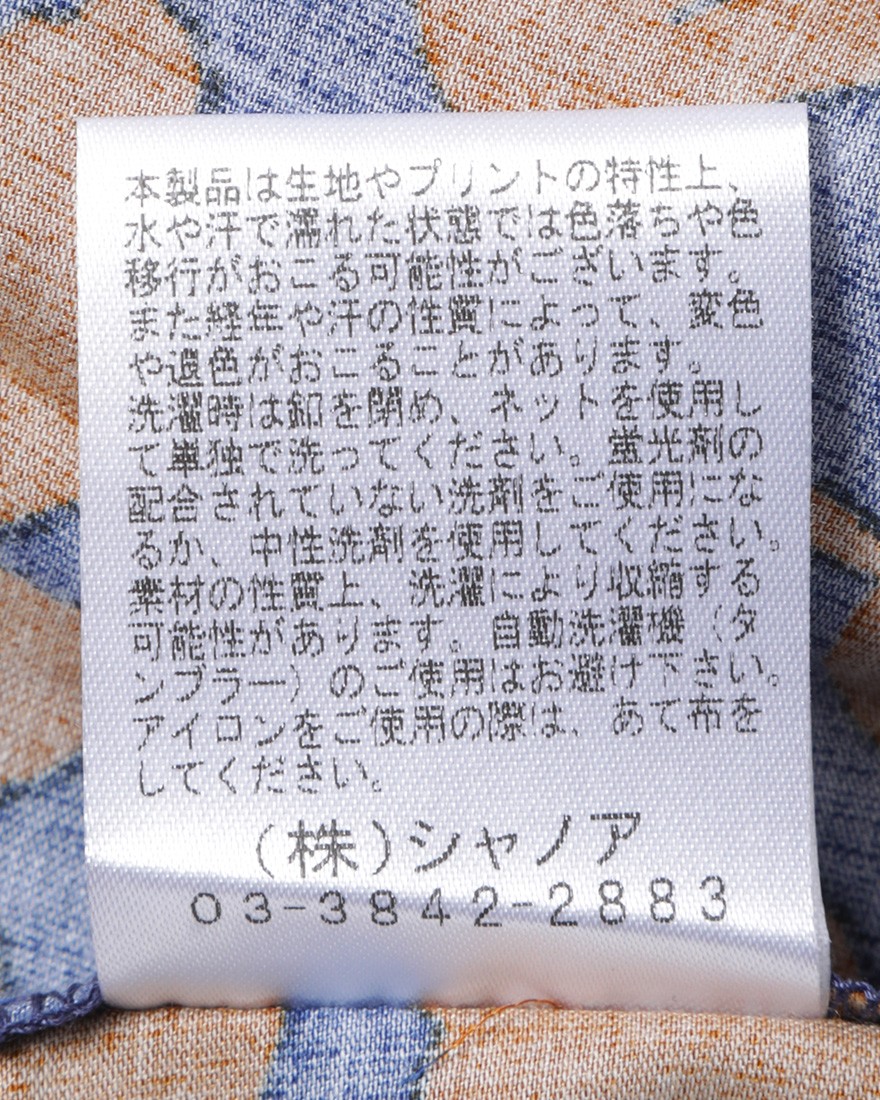 本製品は生地やプリントの特性上、
水や汗で濡れた状態では色落ちや色
移行がおこる可能性がございます。
また経年や汗の性質によって、変色
や退色がおこることがあります。
洗濯時は釦を閉め、ネットを使用し
て単独で洗ってください。蛍光剤の
配合されていない洗剤をご使用にな
るか、中性洗剤を使用してください。
素材の性質上、洗濯により収縮する
可能性があります。自動洗濯機（タ
ンブラー）のご使用はお避け下さい。
アイロンをご使用の際は、あて布を
してください。
（株）シャノア
03-3842-2883